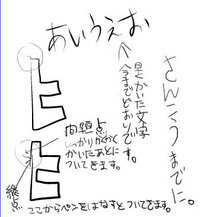 あいうえお
さんこうまでに。
↑是かいた文字
今までどおりです。
E
問題点
しっかりかく
かいたあとに
ついてきます。
E
線点
ここからペンをはねすとついてきます。